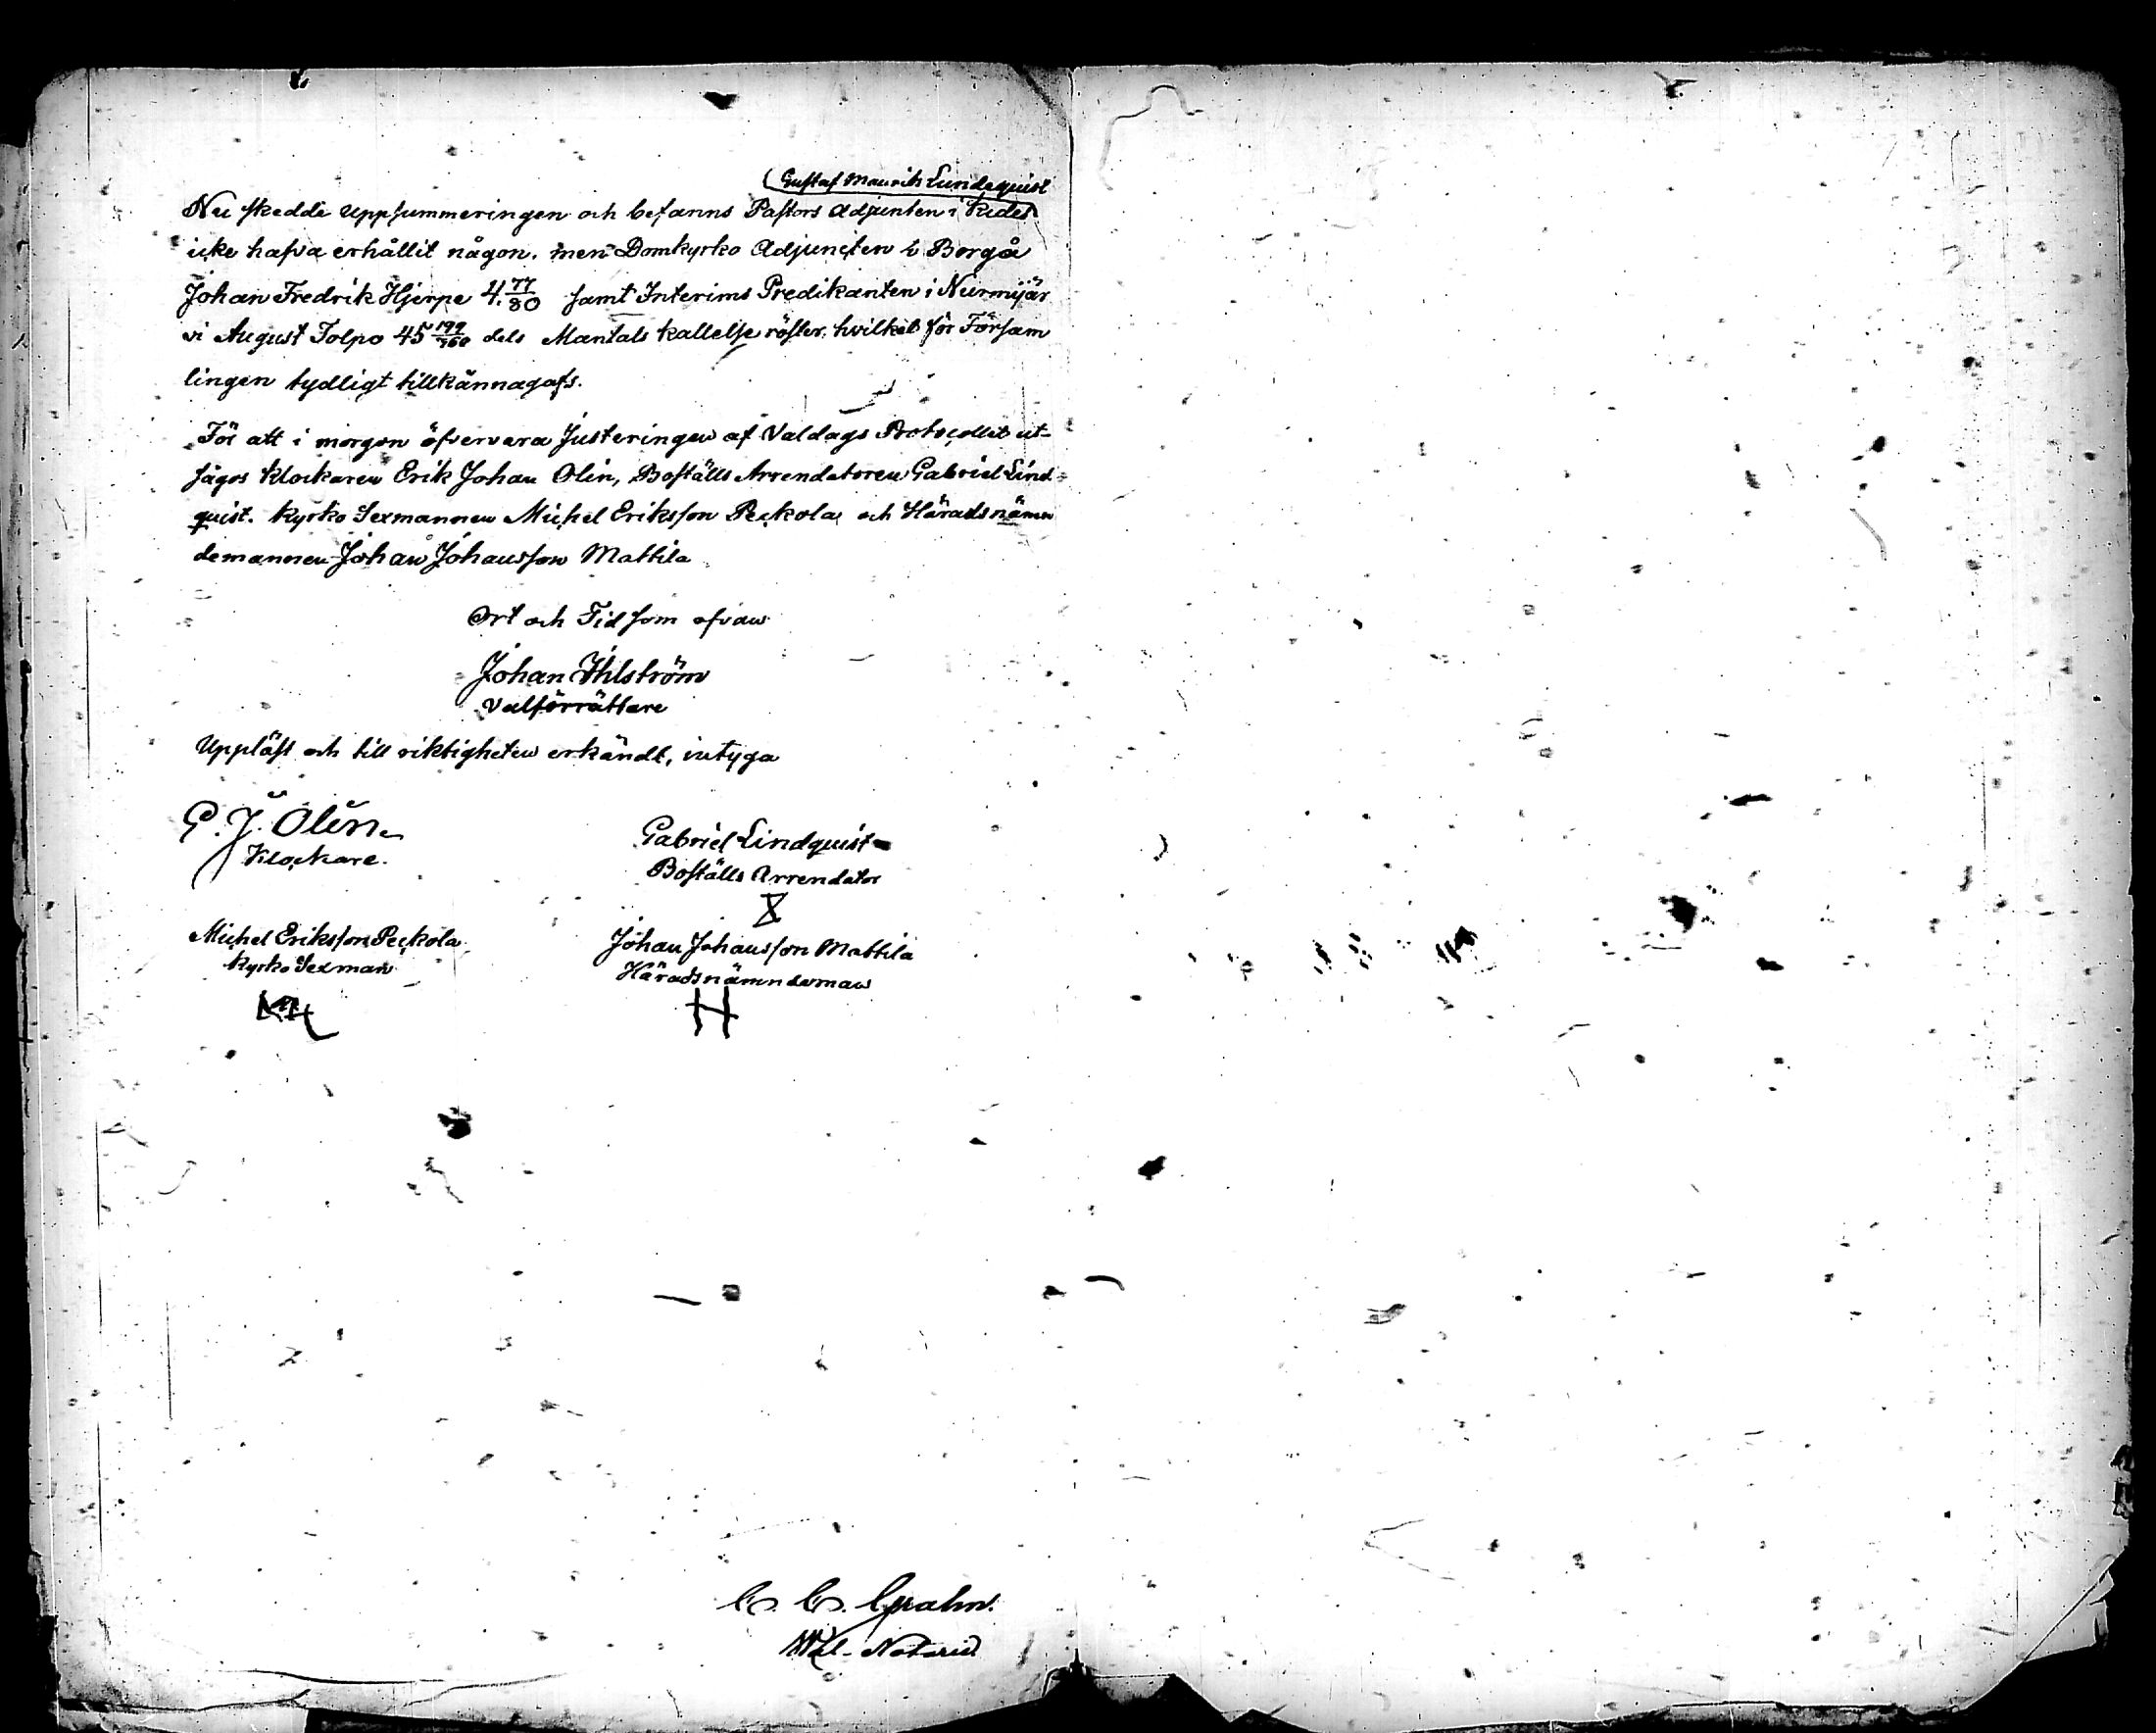 Gustaf Maurits Lundequist
Nu skedde uppsummeringen och befanns Pastors Adjunten i Kides
icke hafva erhållit någon. men Domkyrko Adjuncten i Borgå
Johan Fredrik Hjerpe 4. 77/80 samt Interims Predikanten i Nurmijär
vi August Tolpo 45 199/960 dels Mantals kallelse röster. hvilket för Försam
lingen tydligt tillkännagafs.
För att i morgon öfvervara Justeringen af Valdags Protocollet ut-
sågos Klockaren Erik Johan Olin, Boställs Arrendatoren Gabriel Lind=
quist. Kyrko Sexmannen Michel Eriksson Peckola och Häradsnämn
demannen Johan Johansson Mattila
Ort och Tid som ofvan
Johan Ihlström
Valförrättare
Uppläst och till riktigheten erkändt, intyga
E. J. Olin
Klockare.
Gabriel Lindquist
Boställs Arrendator
X
Michel Eriksson Peckola
Kyrko Sexman
Johan Johansson Mattila
Häradsnämndeman
H
C. C. Grahn.
Val-Notarie